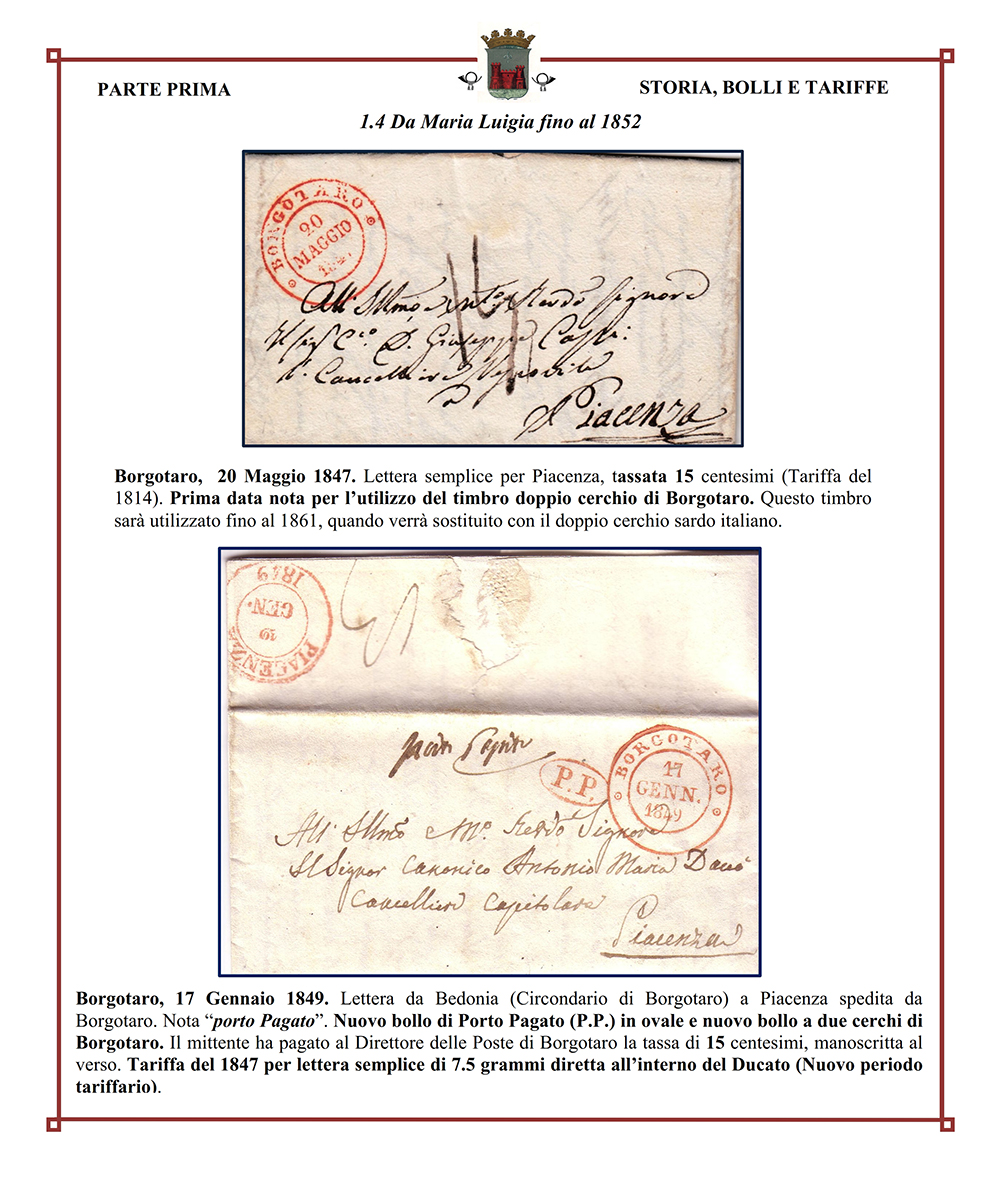 PARTE PRIMA
STORIA, BOLLI E TARIFFE
1.4 Da Maria Luigia fino al 1852
BORGOTARO
20
MAGGIO
All'Illmo e
Signore
D. Giuseppe
Piacenza
Borgotaro, 20 Maggio 1847. Lettera semplice per Piacenza, tassata 15 centesimi (Tariffa del
1814). Prima data nota per l'utilizzo del timbro doppio cerchio di Borgotaro. Questo timbro
sarà utilizzato fino al 1861, quando verrà sostituito con il doppio cerchio sardo italiano.
1849
GEN.
19
PIACENZA
porto Pagato
P.P.
BORGOTARO
17
GENN.
1849
All' Illmo e Mo. Revdo Signore
Il Signor Canonico Antonio Maria
Cancelliere Capitolare
Piacenza
Borgotaro, 17 Gennaio 1849. Lettera da Bedonia (Circondario di Borgotaro) a Piacenza spedita da
Borgotaro. Nota “porto Pagato”. Nuovo bollo di Porto Pagato (P.P.) in ovale e nuovo bollo a due cerchi di
Borgotaro. Il mittente ha pagato al Direttore delle Poste di Borgotaro la tassa di 15 centesimi, manoscritta al
verso. Tariffa del 1847 per lettera semplice di 7.5 grammi diretta all'interno del Ducato (Nuovo periodo
tariffario).